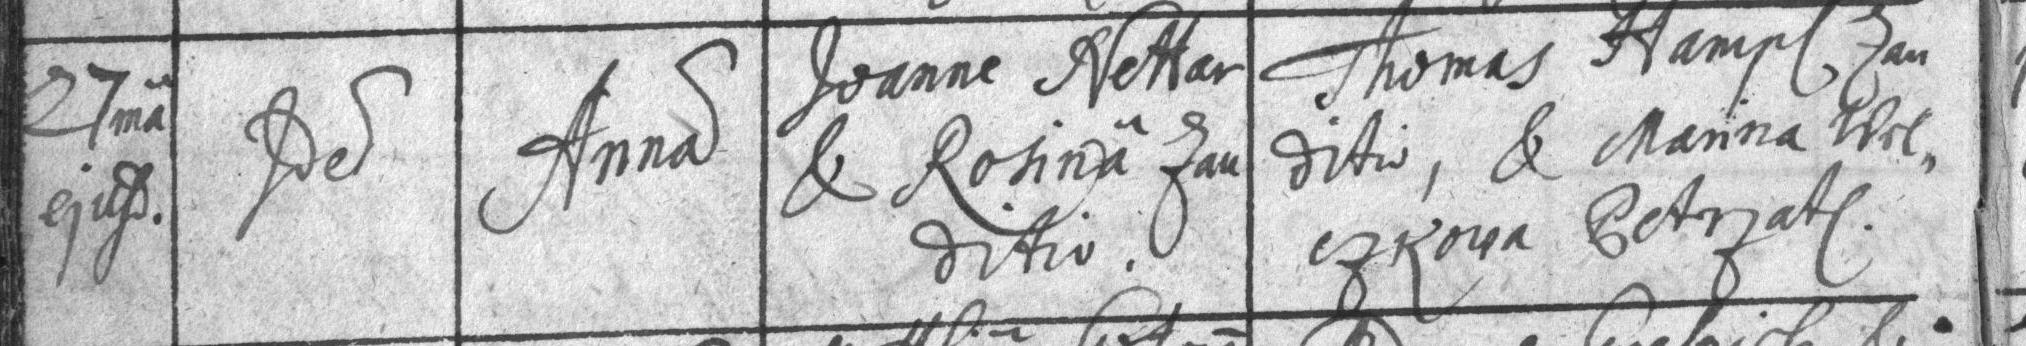 27mâ
ejusd.
Ide
Anna
Joanne Nettar
& Rosinâ Zau
ditiv.
Thomas Hampl Zau
ditiv, & Marina Wel„
czkova Petrzatl.